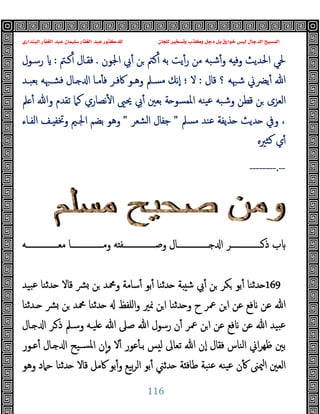 المسيح الدجال ليس خوارق بل دجل وكذب وتسخير للجان للدكتور عبد الغفار سليمان عبد الغفار البنداري
لحي الحديث وفيه وأشبه من رأيت به أكثم بن أبي الجون . فقال أكثم : يا رسول
الله أيضرني شبهه ؟ قال : لا ؛ إنك مسلم وهو كافر فأما الدجال فشبهه بعبد
العزى بن قطن وشبه عينه الممسوحة بعين أبي يحيى الأنصاري كما تقدم والله أعلم
، وفي حديث حذيفة عند مسلم " جفال الشعر " وهو بضم الجيم وتخفيف الفاء
أي كثيره
--.---------
ومن صحيح مسلم
باب ذكر الدجال وصفته وما معه
169حدثنا أبو بكر بن أبي شيبة حدثنا أبو أسامة ومحمد بن بشر قالا حدثنا عبيد
الله عن نافع عن ابن عمر ح وحدثنا ابن نمير واللفظ له حدثنا محمد بن بشر حدثنا
عبيد الله عن نافع عن ابن عمر أن رسول الله صلى الله عليه وسلم ذكر الدجال
بين ظهراني الناس فقال إن الله تعالى ليس بأعور ألا وإن المسيح الدجال أعور
العين اليمنى كأن عينه عنبة طافئة حدثني أبو الربيع وأبو كامل قالا حدثنا حماد وهو
116